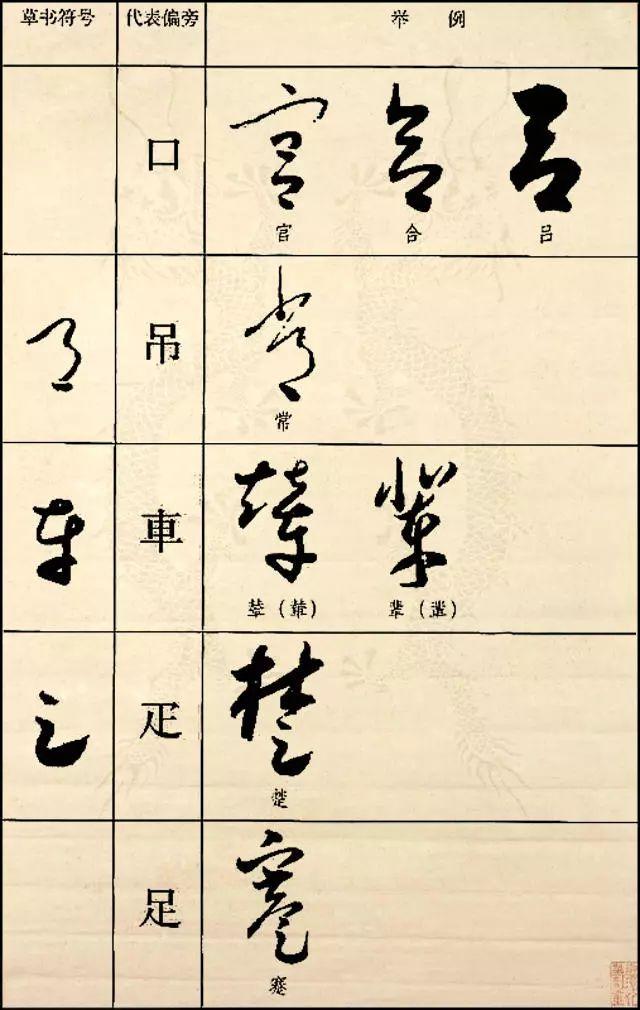 草书符号 代表偏旁 举 例
口
官 合 吕
吊
常
車
疋
楚
足
蹇